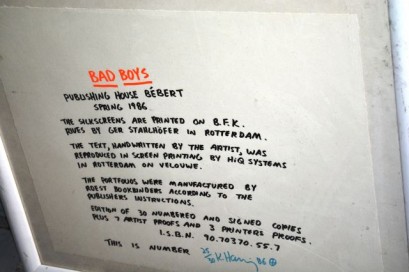 BAD BOYS
PUBLISHING HOUSE BÉBERT
SPRING 1986.
THE SILKSCREENS ARE PRINTED ON B.F.K.
RIVES BY GER STARLHÖFER IN ROTTERDAM.
THE TEXT, HANDWRITTEN BY THE ARTIST, WAS
REPRODUCED IN SCREEN PRINTING BY HIQ SYSTEMS
IN ROTTERDAM ON VELOUWE.
THE PORTFOLIOS WERE MANUFACTURED BY
ADEST BOOKBINDERS ACCORDING TO THE
PUBLISHERS INSTRUCTIONS.
EDITION OF 30 NUMBERED AND SIGNED COPIES
PLUS 7 ARTIST PROOFS AND 3 PRINTERS PROOFS.
I.S.B.N. 90.70370.55.7
THIS IS NUMBER K. Haring 86